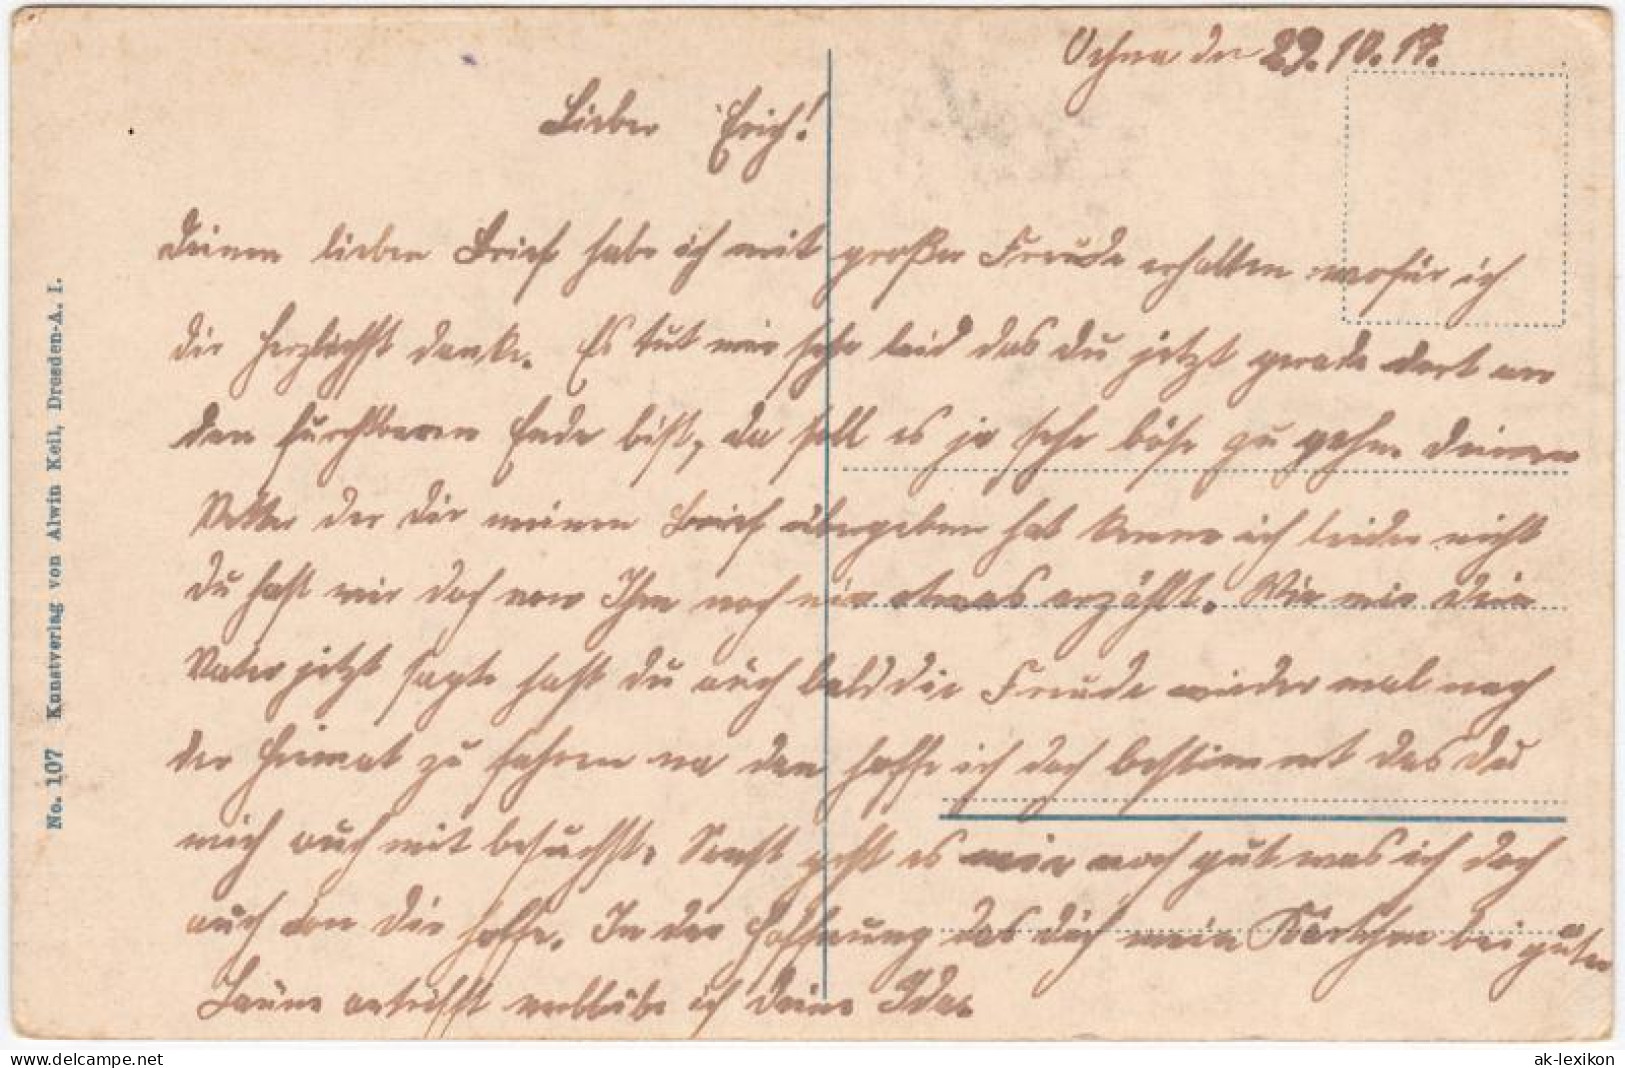 Ochna den 29.10.17.
Lieber Erich!
Deinen lieben Brief habe ich mit großer Freude erhalten wofür ich
dir herzlichst danke. Es tut mir sehr leid das du jetzt gerade dort an
den furchtbaren Ende bist, da soll es ja sehr böse zu gehen Deinen
Vetter der dir meinen Brief übergeben hat kenne ich leider nicht
du hast mir doch von Ihm noch nie etwas erzählt. Wie mir dein
Vater jetzt sagte hast du auch bald die Freude wieder mal nach
der Heimat zu fahren na dan hoffe ich doch bestimmt das du
mich auch mit besuchst. Sonst geht es mir noch gut was ich doch
auch von dir hoffe. In der Hoffnung das dich mein Kärtchen bei guter
Laune antrifft verbleibe ich deine Ida.
No. 107 Kunstverlag von Alwin Keil, Dresden-A. I.
ak-lexikon
www.delcampe.net